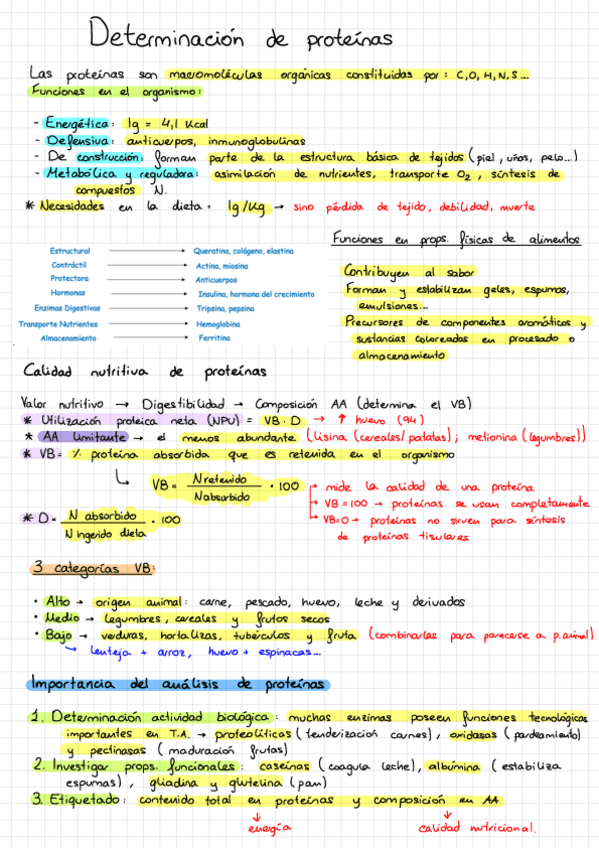 Determinación de proteínas
Las proteínas son macromoléculas orgánicas constituidas por: C,O,H,N,S...
Funciones en el organismo:
- Energética: 1g = 4,1 Kcal
- Defensiva: anticuerpos, inmunoglobulinas
- De construcción: forman parte de la estructura básica de tejidos (piel, uñas, pelo...)
- Metabólica y reguladora: asimilación de nutrientes, transporte O₂, síntesis de
compuestos N.
* Necesidades en la dieta = 1g/Kg → sino pérdida de tejido, debilidad, muerte
Estructural → Queratina, colágeno, elastina
Contráctil → Actina, miosina
Protectora → Anticuerpos
Hormonas → Insulina, hormona del crecimiento
Enzimas Digestivas → Tripsina, pepsina
Transporte Nutrientes → Hemoglobina
Almacenamiento → Ferritina
Funciones en props. físicas de alimentos
Contribuyen al sabor
Forman y estabilizan geles, espumas,
emulsiones...
Precursores de componentes aromáticos y
sustancias coloreadas en procesado o
almacenamiento
Calidad nutritiva de proteínas
Valor nutritivo → Digestibilidad → Composición AA (determina el VB)
* Utilización proteica neta (NPU) = VB · D → ↑ huevo (94)
* AA limitante → el menos abundante (lisina (cereales/patatas); metionina (legumbres))
* VB = % proteína absorbida que es retenida en el organismo
VB = N retenido / N absorbido · 100
→ mide la calidad de una proteína
→ VB = 100 → proteínas se usan completamente
→ VB=0 → proteínas no sirven para síntesis
de proteínas tisulares
* D = N absorbido / N ingerido dieta · 100
3 categorías VB:
• Alto → origen animal: carne, pescado, huevo, leche y derivados
• Medio → legumbres, cereales y frutos secos
• Bajo → verduras, hortalizas, tubérculos y fruta (combinarlas para parecerse a p.animal)
↳ lenteja + arroz, huevo + espinacas...
Importancia del análisis de proteínas
1. Determinación actividad biológica: muchas enzimas poseen funciones tecnológicas
importantes en T.A. → proteolíticas (tenderización carnes), oxidasas (pardeamiento)
y pectinasas (maduración frutas)
2. Investigar props. funcionales: caseínas (coagula leche), albúmina (estabiliza
espumas), gliadina y glutelina (pan)
3. Etiquetado: contenido total en proteínas y composición en AA
↓ energía ↓ calidad nutricional.